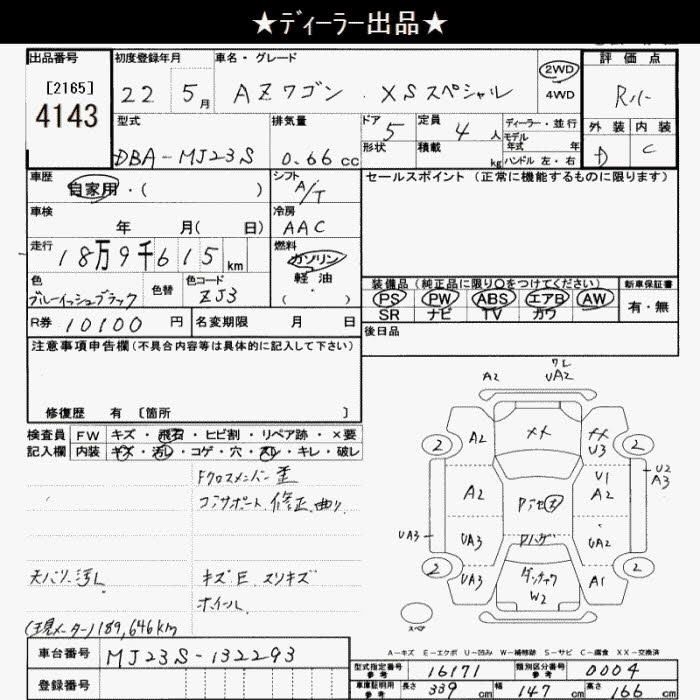 ★ディーラー出品★
出品番号 初度登録年月 車名・グレード 評価点
[2165] 4143 22 5月 AZワゴン XSスペシャル 2WD 4WD
外装 内装
D C
型式 排気量 ドア 5 定員 4人 ディーラー・並行
モデル年式 年
DBA-MJ23S 0.66cc 形状 積載 kg ハンドル 左・右
車歴 自家用・( ) シフト A/T セールスポイント(正常に機能するものに限ります)
車検 年 月( 日) 冷房 AAC
走行 18万9千615km 燃料 ガソリン 軽油 ・( )
色 ブルーイッシュブラック 色替 色コード ZJ3
装備品(純正品に限り○をつけてください) 新車保証書
PS PW ABS エアB AW 有・無
SR ナビ TV カワ
R券 10100円 名変期限 月 日 後日品
注意事項申告欄(不具合内容等は具体的に記入して下さい)
修復歴 有 〔箇所 〕
検査員 FW キズ・飛石・ヒビ割・リペア跡・×要
記入欄 内装 キズ・汚レ・コゲ・穴・スレ・キレ・破レ
Fクロスメンバー歪
コアサポート修正、曲り
天バリ汚レ キズE スリキズ
ホイール
(現メーター)189,646km
A2 UA2
A2 メメ メメ U3
2 2
A2 U1 A2 U2 A3
UA3 UA3 UA2
2 UA3 W2 A1 2
スペア
A-キズ E-エクボ U-凹み W-補修跡 S-サビ C-腐食 XX-交換済
車台番号 MJ23S-132293
登録番号
型式指定番号 参考 16171 類別区分番号 参考 0004
車庫証明用 参考 長さ 339cm 幅 147cm 高さ 166cm